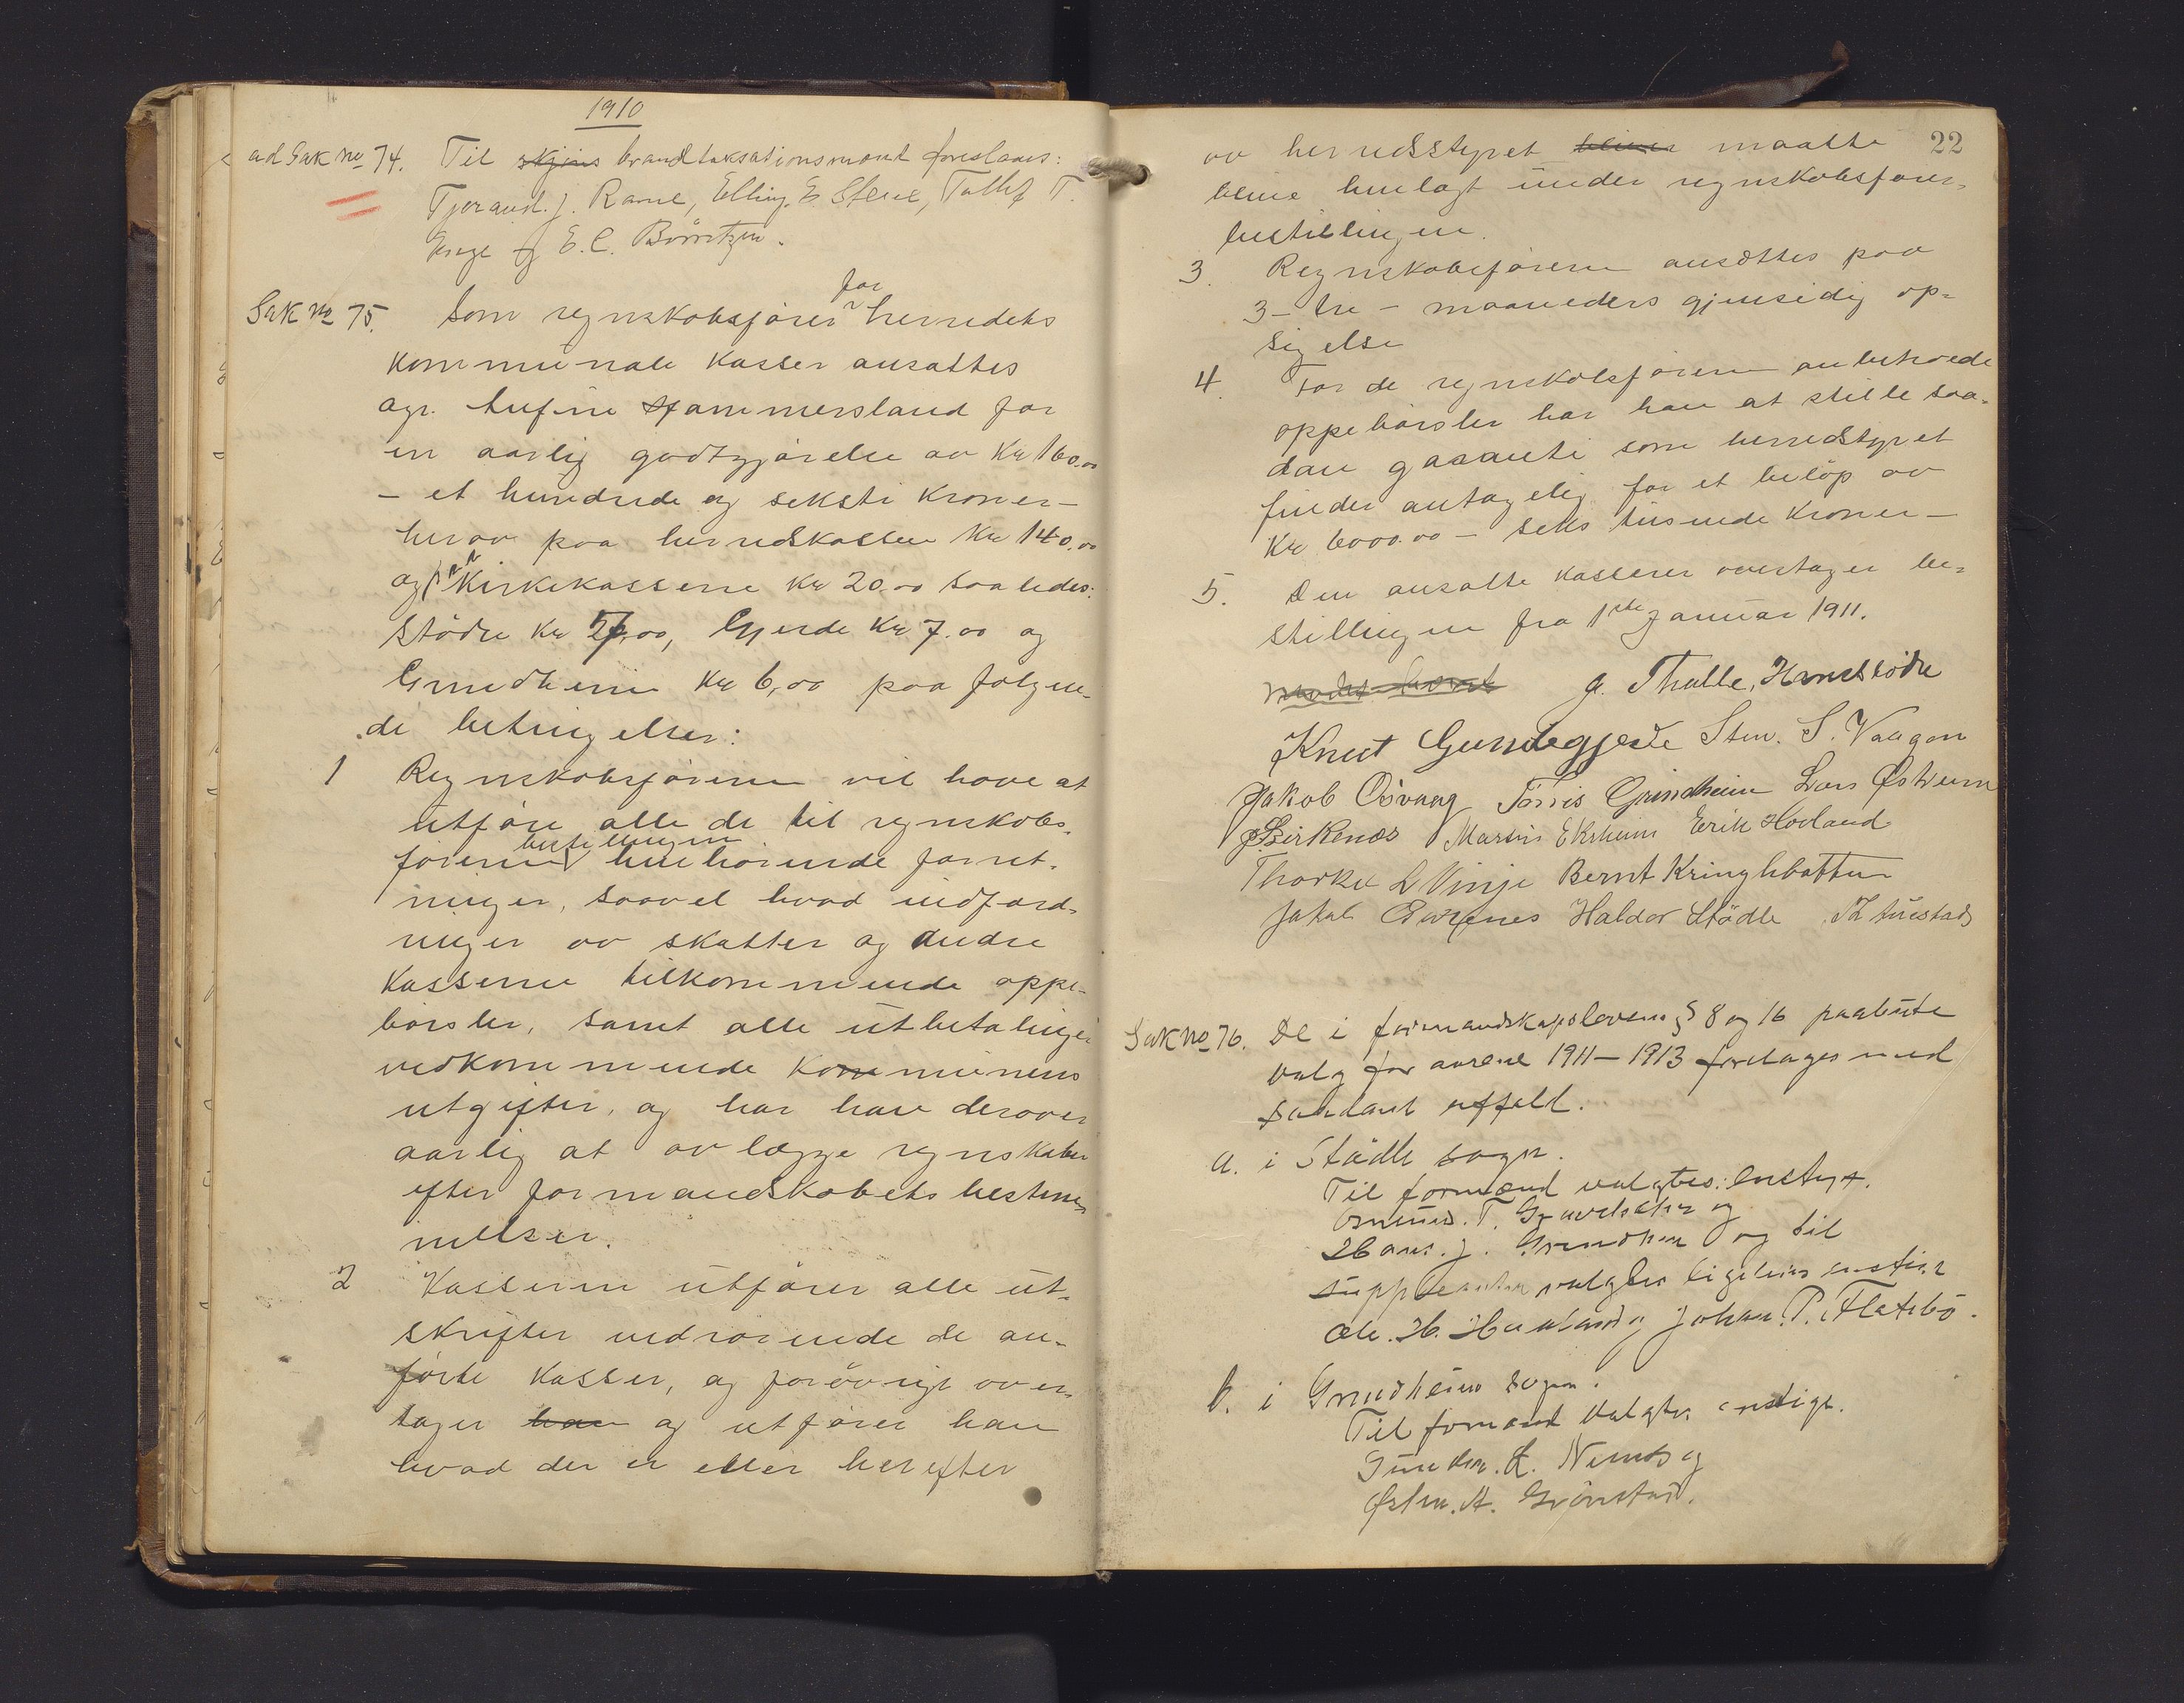 1910
ad Sak no 74. Til skjøns brandtaksationsmænd foreslaaes:
Tjerand. J. Rame, Elling. E. Stene, Tollef T.
Enge og E. C. Børretzen.
for
Sak no 75. Som regnskabsfører herredets
kommunale kasser ansattes
agr. Hammersland for
en aarlig godtgjørelse av Kr 160.00
- et hundrede og seksti kroner -
herav paa herredskassen Kr 140.00
og paa Kirkekasserne Kr 20.00 saaledes:
Stödle Kr 7.00, Gjerde Kr 7.00 og
Grindheim Kr 6,00 paa følgen-
de betingelser:
1 Regnskabsføreren vil have at
utføre alle de til regnskabs-
bestillingen
fører henhørende forret-
ninger, saavel hvad indford-
ringer av skatter og andre
kasserne tilkommende oppe-
børsler, samt alle utbetalinger
vedkommende kommunens
utgifter, og har han derover
aarlig at avlægge regnskaber
efter formandskabets bestem-
melser.
2 Kasseren utfører alle ut-
skrifter vedrørende de an-
førte kasser, og forøvrigt over-
tager han og utfører han
hvad der er eller herefter
22
av herredsstyret bliver maatte
blive henlagt under regnskabsfører-
bestillingen.
3. Regnskabsføreren ansættes paa
3 - tre - maaneders gjensidig op-
sigelse
4. For de regnskabsføreren anbetroede
oppebørsler har han at stille saa-
dan garanti som herredstyret
finder antagelig for et beløp av
Kr 6000.00 - seks tusende kroner -
5. Den ansatte kasserer overtager be-
stillingen fra 1ste Januar 1911.
Mødet hævet G. Thalle, H
Knut Gundegjerde Sten. S. Vaagen
Jakob Osvaag Tørris Grindheim Lars Østrem
Birkenæs Martin Ekrheim Erik Hovland
Thorkel L Vinje Bernt Kringlebotten
Jakob Haldor Stödle Tuestad
Sak no 76. De i formandskapsloven § 8 og 16 paabudte
valg for aarene 1911-1913 foretages med
saadant utfald.
a. i Stødle sogn.
Til formænd valgtes: enstg.
Osmund. T. og
Hans. J. Grindheim og til
suppleanter valgtes ligeledes enstigt
Ole. H. og Johan. P. Flatebø.
b. i Grindheim sogn:
Til formænd valgtes enstigt.
Gunder. L. Nernes og
Østen. A. Grönstad.